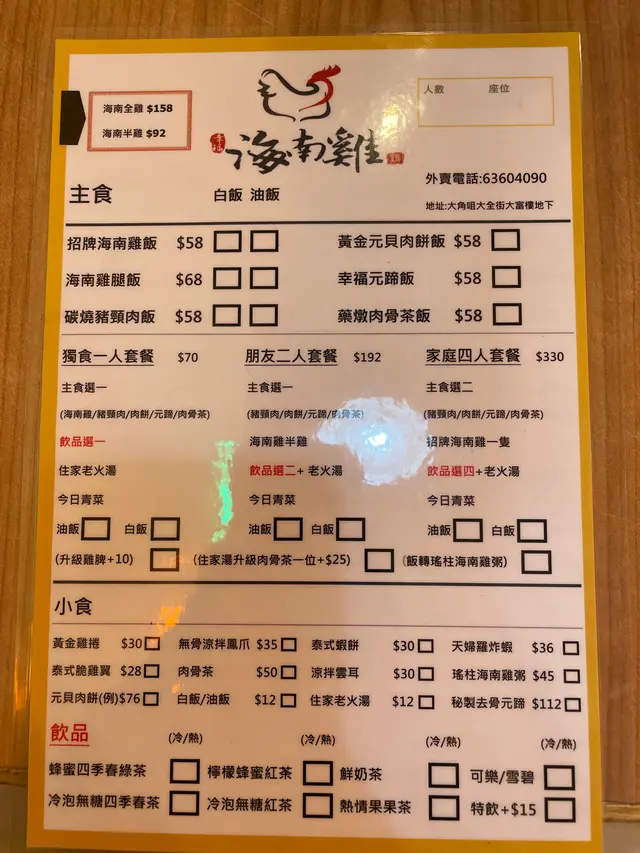 海南全雞 $158
海南半雞 $92
人數 座位
幸福 海南雞
外賣電話:63604090
地址:大角咀大全街大富樓地下
主食 白飯 油飯
招牌海南雞飯 $58 黃金元貝肉餅飯 $58
海南雞腿飯 $68 幸福元蹄飯 $58
碳燒豬頸肉飯 $58 藥燉肉骨茶飯 $58
獨食一人套餐 $70 朋友二人套餐 $192 家庭四人套餐 $330
主食選一 主食選一 主食選二
(海南雞/豬頸肉/肉餅/元蹄/肉骨茶) (豬頸肉/肉餅/元蹄/肉骨茶) (豬頸肉/肉餅/元蹄/肉骨茶)
飲品選一 海南雞半雞 招牌海南雞一隻
住家老火湯 飲品選二+ 老火湯 飲品選四+老火湯
今日青菜 今日青菜 今日青菜
油飯 白飯 油飯 白飯 油飯 白飯
(升級雞脾+10) (住家湯升級肉骨茶一位+$25) (飯轉瑤柱海南雞粥)
小食
黃金雞捲 $30 無骨涼拌鳳爪 $35 泰式蝦餅 $30 天婦羅炸蝦 $36
泰式脆雞翼 $28 肉骨茶 $50 涼拌雲耳 $30 瑤柱海南雞粥 $45
元貝肉餅(例)$76 白飯/油飯 $12 住家老火湯 $12 秘製去骨元蹄 $112
飲品 (冷/熱) (冷/熱) (冷/熱) (冷/熱)
蜂蜜四季春綠茶 檸檬蜂蜜紅茶 鮮奶茶 可樂/雪碧
冷泡無糖四季春茶 冷泡無糖紅茶 熱情果果茶 特飲+$15